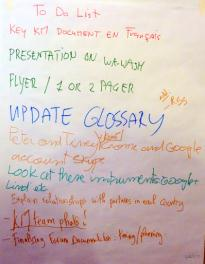 To Do List
KEY KM DOCUMENT EN Français
PRESENTATION ON WA-WASH
FLYER / 1 OR 2 PAGER
RSS
UPDATE GLOSSARY
Peter and Tuney Chrome and Google
account Skype
Look at these instruments Google+
Lind etc
Explain relationships with partners in each country
- KM team photo!
- Finalising Forum Documentation - timing/planning